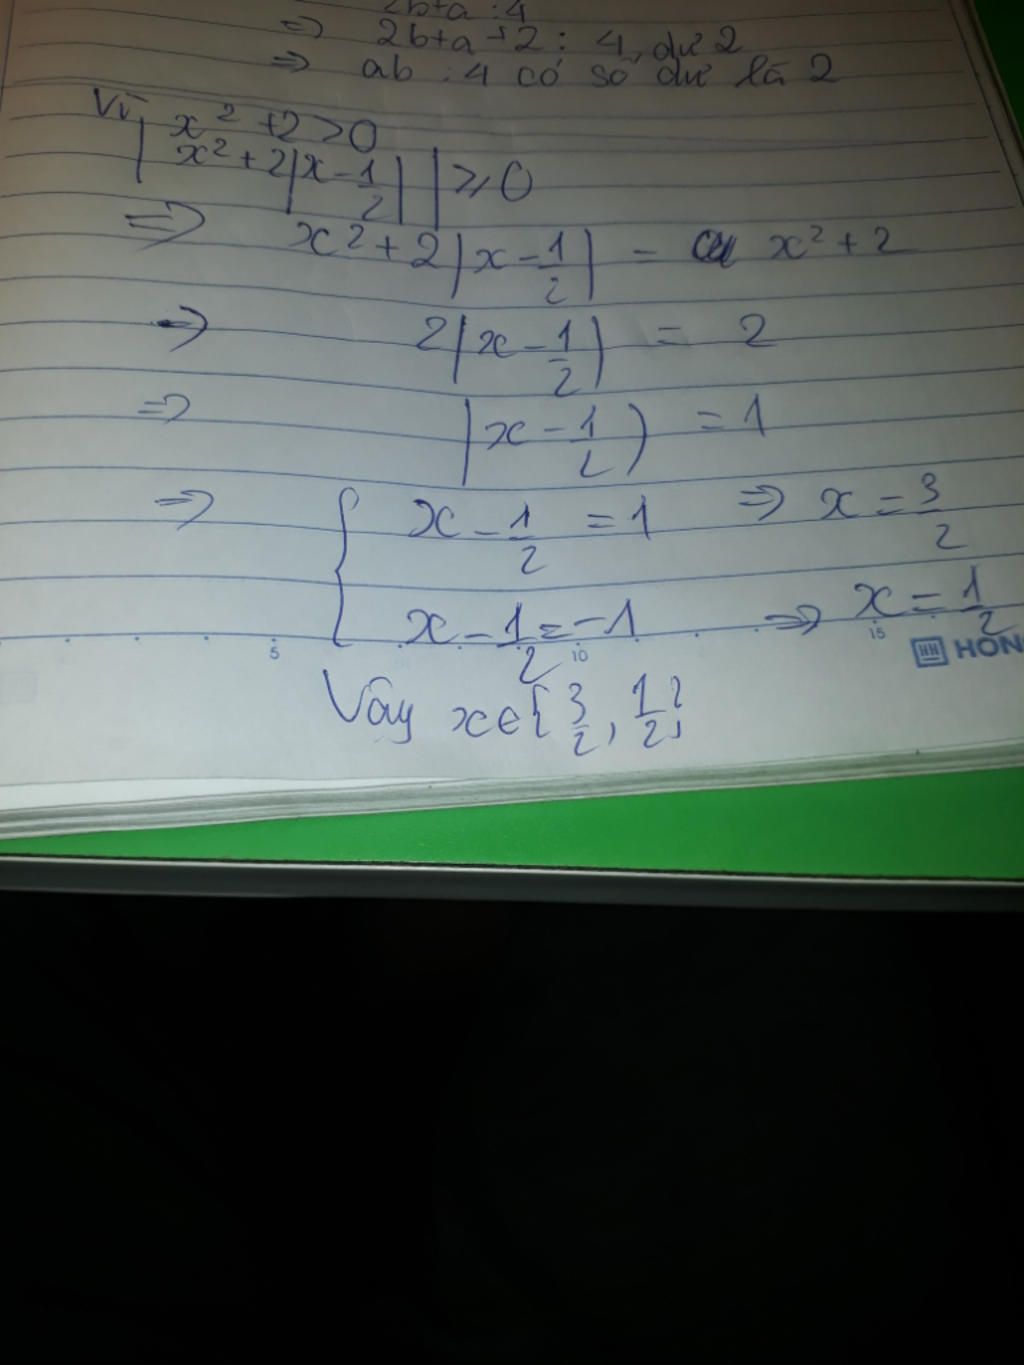 2b+a : 4
=> 2b+a +2 : 4, dư 2
=> ab : 4 có số dư là 2
Vì x² +2 >0
|x² + 2|x - 1/2|| ≥ 0
=> x² + 2|x - 1/2| = x² + 2
=> 2|x - 1/2| = 2
=> |x - 1/2| = 1
=> { x - 1/2 = 1 => x = 3/2
x - 1/2 = -1 => x = 1/2
5 10 15 HON
Vậy x ∈ {3/2, 1/2}